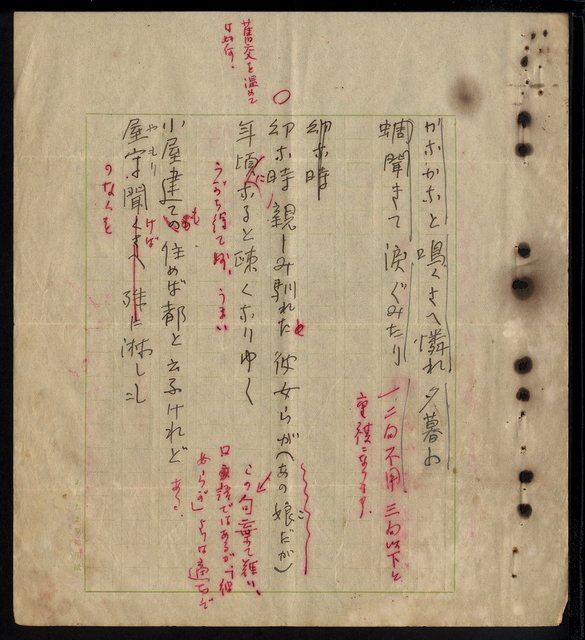 かなかなと 鳴くさへ憐れ 夕暮の
蜩聞きて 涙ぐみたり
一、二句不用、三句以下と
重複になります。
幼な時
幼な時 親しみ馴れた 彼女らが(あの娘だが)
と
この句棄て難い、
口語ではあるが「彼
女らが」よりは適切だ
舊交を温めて
は如何。
年頃なると 疎くなりゆく
に
うがち得て妙、うまい
小屋建ての 住めば都と 云ふけれど
も
ある。
屋守聞くさへ 殊に淋しし
やもり
けば
のなくを